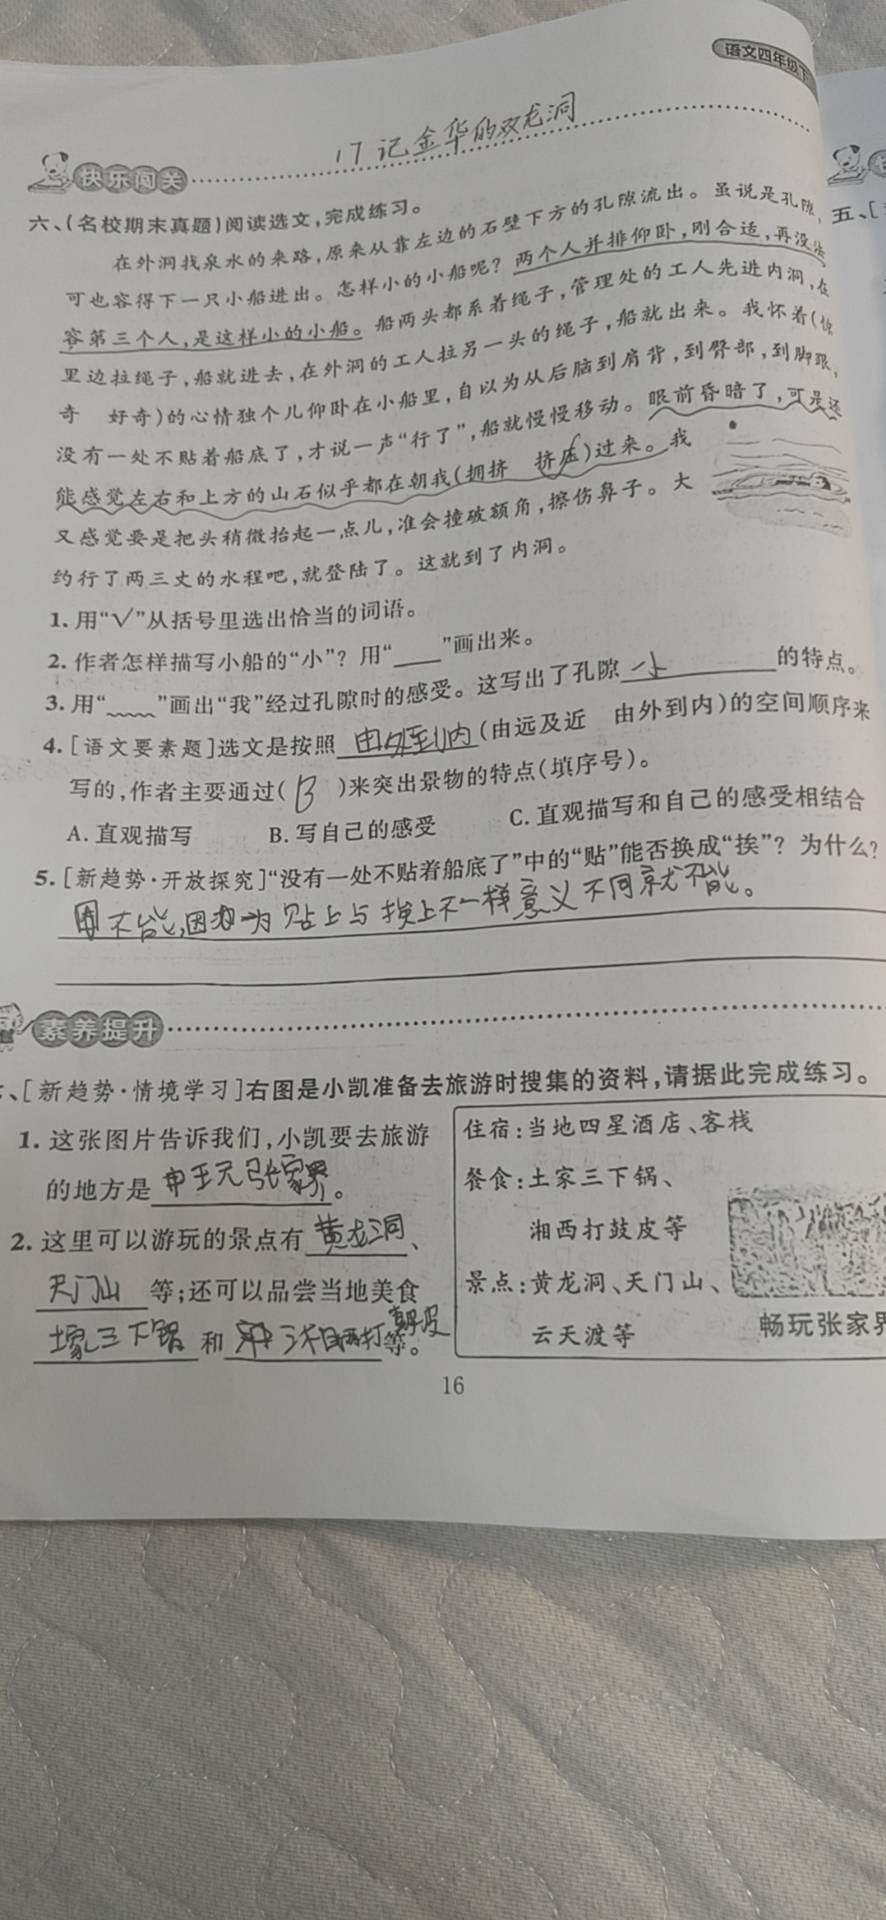 语文四年级下
17 记金华的双龙洞
快乐闯关
六、(名校期末真题)阅读选文,完成练习。
在外洞找泉水的来路,原来从靠左边的石壁下方的孔隙流出。虽说是孔隙,
可也容得下一只小船进出。怎样小的小船呢?两个人并排仰卧,刚合适,再没法
容第三个人,是这样小的小船。船两头都系着绳子,管理处的工人先进内洞,在
里边拉绳子,船就进去,在外洞的工人拉另一头的绳子,船就出来。我怀着(惊
奇 好奇)的心情独个儿仰卧在小船里,自以为从后脑到肩背,到臀部,到脚跟,
没有一处不贴着船底了,才说一声“行了”,船就慢慢移动。眼前昏暗了,可是还
能感觉左右和上方的山石似乎都在朝我(拥挤 挤压)过来。我
又感觉要是把头稍微抬起一点儿,准会撞破额角,擦伤鼻子。大
约行了两三丈的水程吧,就登陆了。这就到了内洞。
1. 用“√”从括号里选出恰当的词语。
2. 作者怎样描写小船的“小”?用“____”画出来。
3. 用“﹏﹏”画出“我”经过孔隙时的感受。这写出了孔隙 小 的特点。
4. [语文要素题]选文是按照 由外到内 (由远及近 由外到内)的空间顺序来
写的,作者主要通过( B )来突出景物的特点(填序号)。
A. 直观描写 B. 写自己的感受 C. 直观描写和自己的感受相结合
5. [新趋势·开放探究]“没有一处不贴着船底了”中的“贴”能否换成“挨”?为什么?
不能,因为贴上与挨上不一样意义不同就不能。
素养提升
、[新趋势·情境学习]右图是小凯准备去旅游时搜集的资料,请据此完成练习。
1. 这张图片告诉我们,小凯要去旅游
的地方是 张家界 。
2. 这里可以游玩的景点有 黄龙洞 、
天门山 等;还可以品尝当地美食
土家三下锅 和 湘西打鼓皮 等。
住宿:当地四星酒店、客栈
餐食:土家三下锅、
湘西打鼓皮等
景点:黄龙洞、天门山、
云天渡等
畅玩张家界
16
五、[